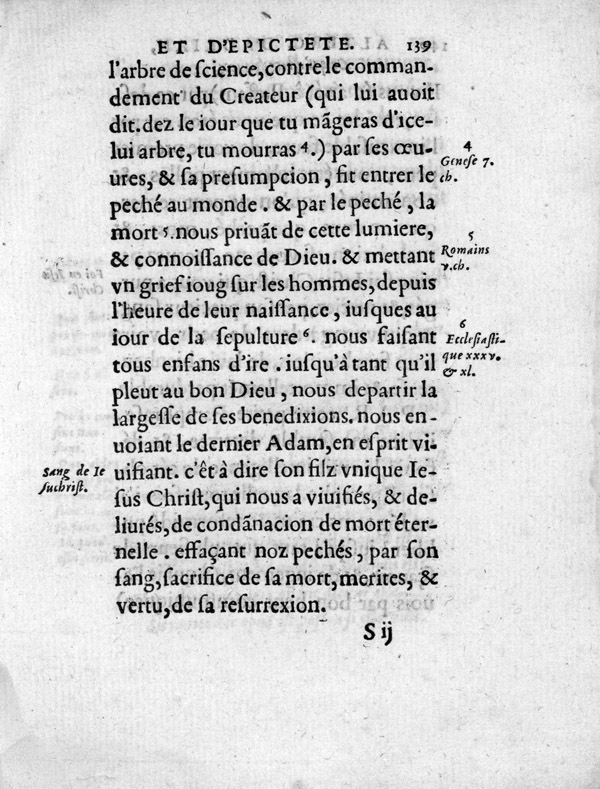 ET D'EPICTETE. 139
l'arbre de ſcience, contre le comman-
dement du Createur (qui lui auoit
dit. dez le iour que tu mãgeras d'ice-
lui arbre, tu mourras 4.) par ſes œu-
ures, & ſa preſumpcion, fit entrer le
peché au monde. & par le peché, la
mort 5. nous priuãt de cette lumiere,
& connoiſſance de Dieu. & mettant
vn grief ioug ſur les hommes, depuis
l'heure de leur naiſſance, iuſques au
iour de la ſepulture 6. nous faiſant
tous enfans d'ire. iuſqu'à tant qu'il
pleut au bon Dieu, nous departir la
largeſſe de ſes benedixions. nous en-
uoiant le dernier Adam, en eſprit vi-
uifiant. c'êt à dire ſon filz vnique Ie-
ſus Chriſt, qui nous a viuifiés, & de-
liurés, de condãnacion de mort éter-
nelle. effaçant noz pechés, par ſon
ſang, ſacrifice de ſa mort, merites, &
vertu, de ſa reſurrexion.
S ij
4
Geneſe 7.
ch.
5
Romains
v. ch.
6
Eccleſiaſti-
que xxxv.
& xl.
Sang de Ie
ſuchriſt.